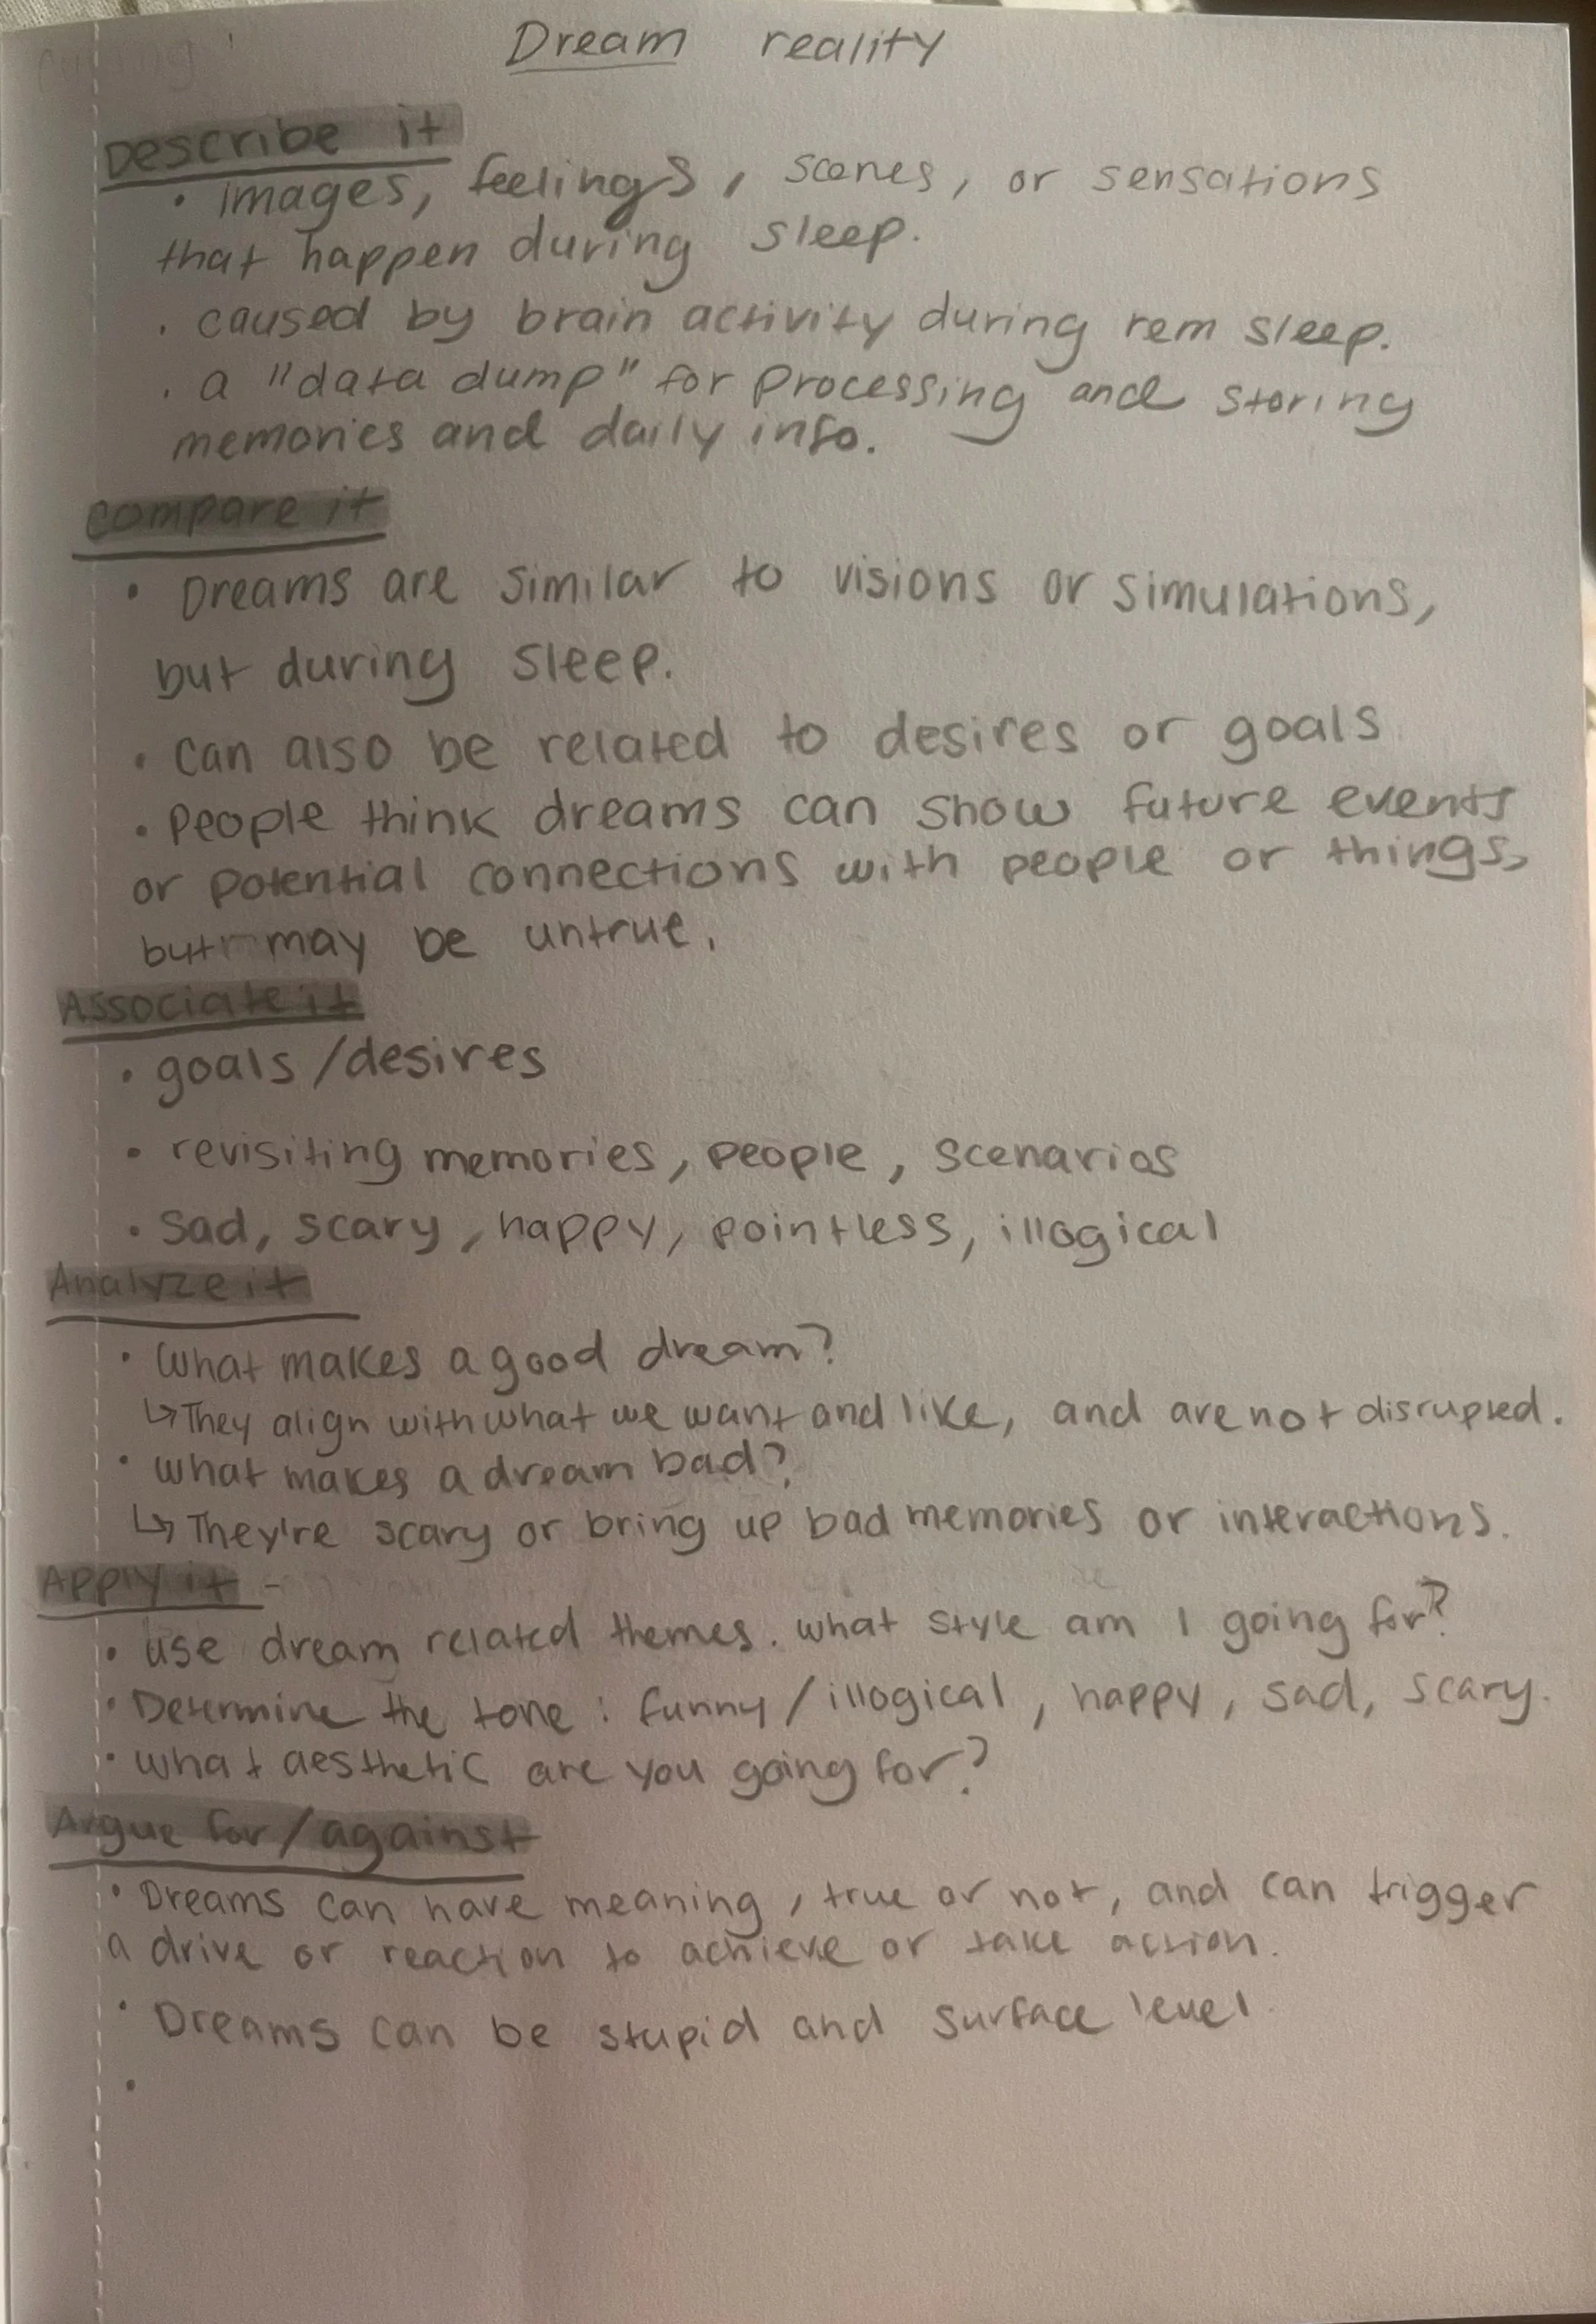 Dream reality
Describe it
• images, feelings, scenes, or sensations
that happen during sleep.
• caused by brain activity during rem sleep.
• a "data dump" for processing and storing
memories and daily info.
compare it
• Dreams are similar to visions or simulations,
but during sleep.
• can also be related to desires or goals
• people think dreams can show future events
or potential connections with people or things,
but may be untrue.
Associate it
• goals/desires
• revisiting memories, people, scenarios
• sad, scary, happy, pointless, illogical
Analyze it
• what makes a good dream?
↳ They align with what we want and like, and are not disrupted.
• what makes a dream bad?
↳ They're scary or bring up bad memories or interactions.
Apply it -
• use dream related themes. what style am I going for?
• Determine the tone: funny/illogical, happy, sad, scary.
• what aesthetic are you going for?
Argue for/against
• Dreams can have meaning, true or not, and can trigger
a drive or reaction to achieve or take action.
• Dreams can be stupid and surface level.
•